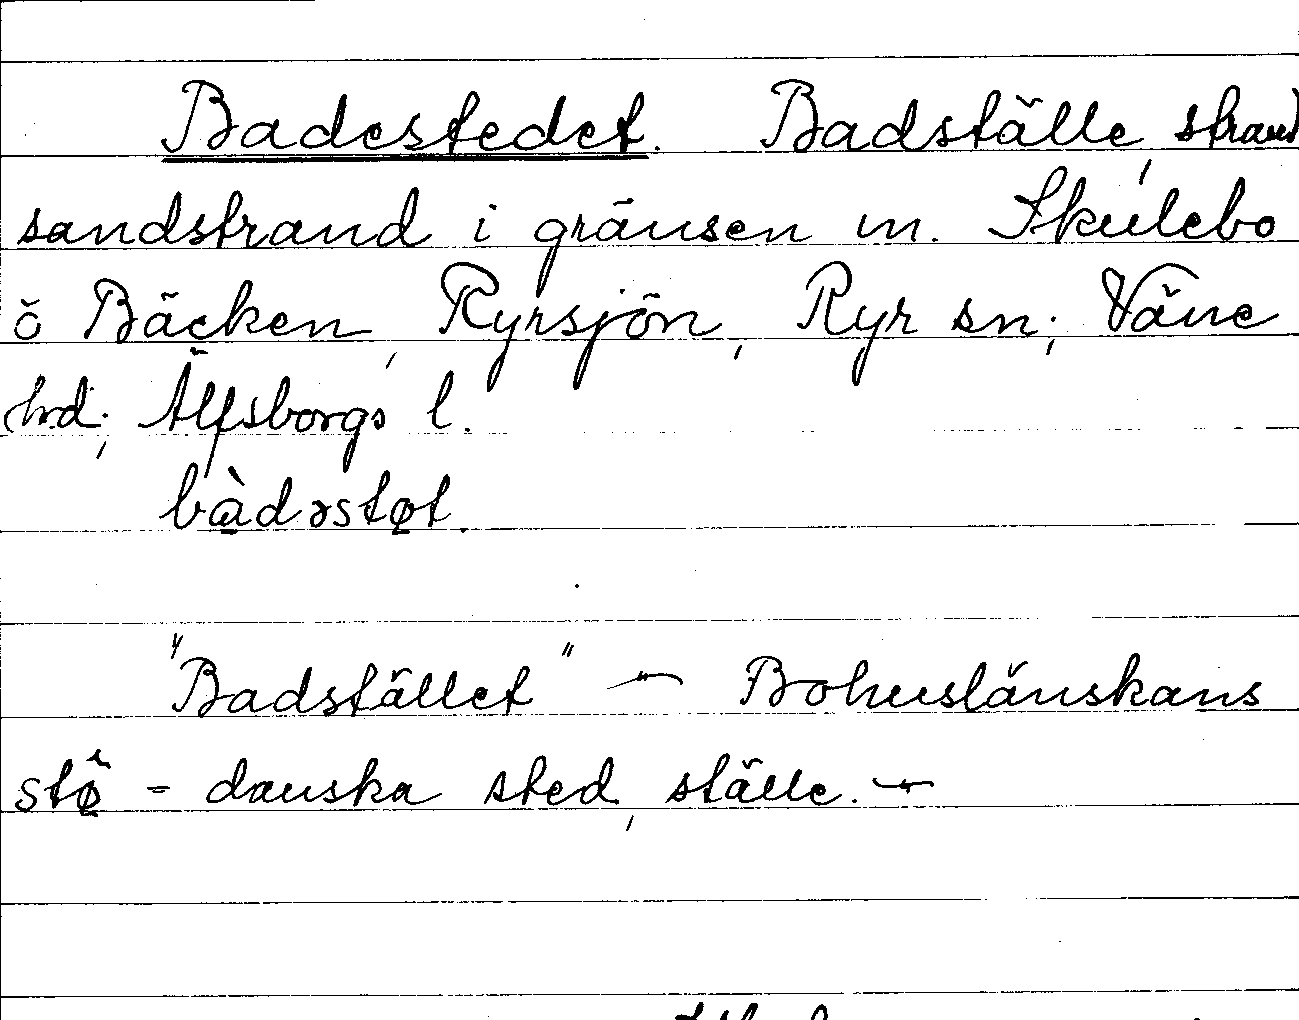 Badestedet. Badställe, strand
sandstrand i gränsen m. Skulebo
o Bäcken, Ryrsjön, Ryr sn; Väne
hd; Älfsborgs l.
bàdəstøt.
"Badstället" — Bohuslänskans
stø̂ = danska sted, ställe. —